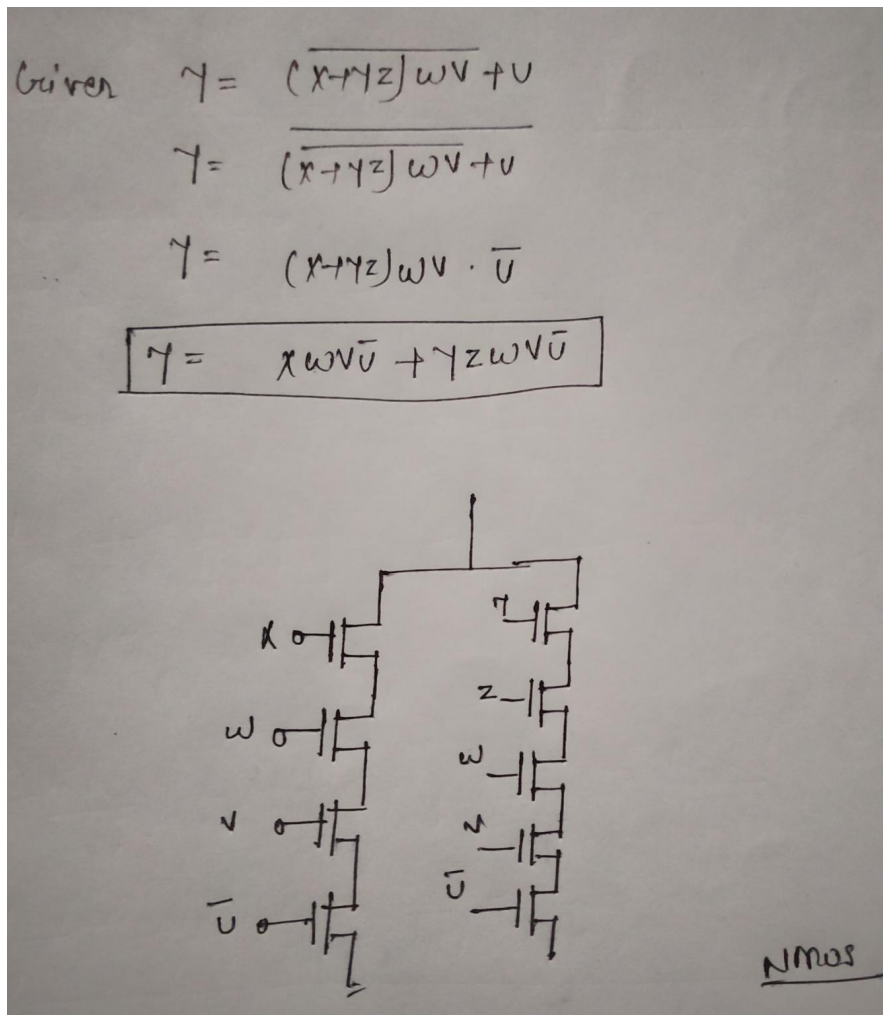 Given Y = \overline{(X+YZ)WV}+U
Y = \overline{\overline{(X+YZ)WV}+U}
Y = (X+YZ)WV . Ū
Y = XWVŪ + YZWVŪ
X
W
V
Ū
Y
Z
W
Ū
NMOS